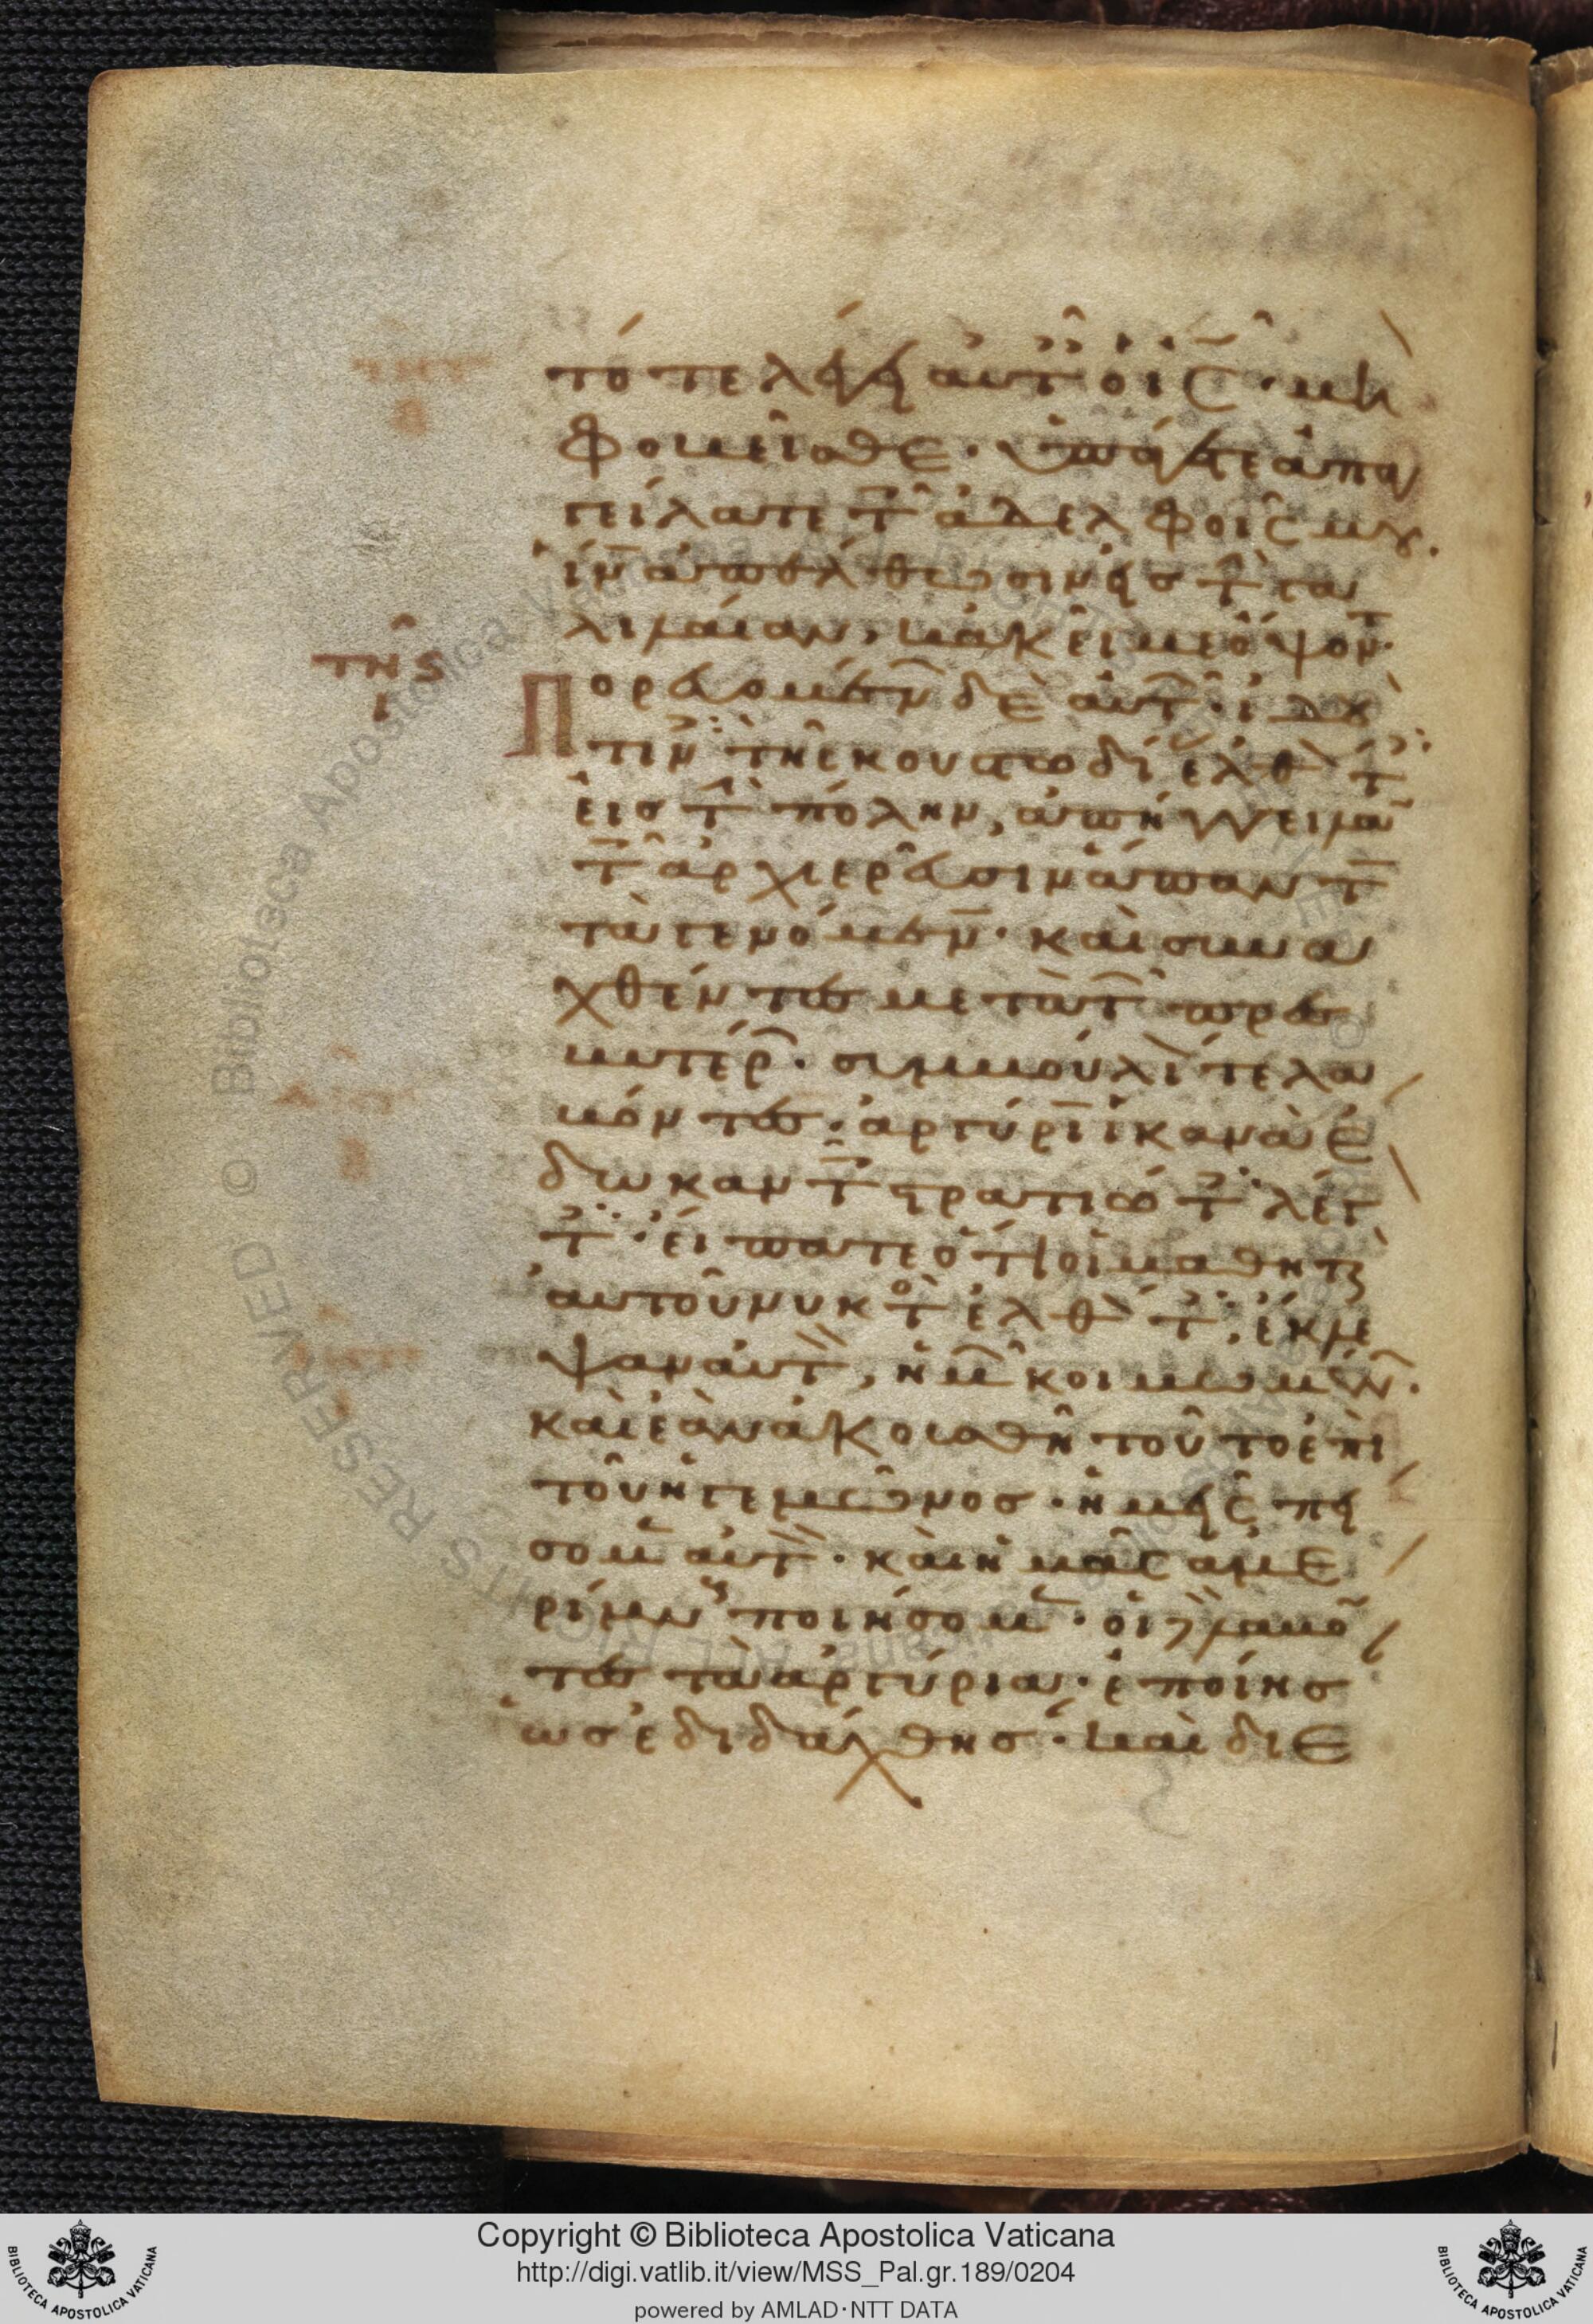 τό τε λέγει αὐτοῖς· μὴ
φοβεῖσθε· ὑπάγετε ἀπα
γείλατε τοῖς ἀδελφοῖς μου.
ἵνα ἀπέλθωσιν εἰς τὴν γα
λιλαίαν, κἀκεῖ με ὄψονται·
Πορευομένων δὲ αὐτῶν· ἰδού
τινες τῆς κουστωδίας ἐλθόντες
εἰς τὴν πόλην, ἀπήγγειλαν
τοῖς ἀρχιερεῦσιν ἅπαντα
τὰ γενόμενα· καὶ συνα
χθέντες μετὰ τῶν πρεσ
βυτέρων· συμβούλιόν τε λα
βόντες· ἀργύρια ἱκανὰ ἔ
δωκαν τοῖς στρατιώταις λέγον
τες· εἴπατε ὅτι οἱ μαθηταὶ
αὐτοῦ νυκτὸς ἐλθόντες, ἔκλε
ψαν αὐτόν, ἡμῶν κοιμωμένων.
καὶ ἐὰν ἀκουσθῆ τοῦτο ἐπὶ
τοῦ ἡγεμῶνος· ἡμεῖς πεί
σομεν αὐτόν· καὶ ἡμᾶς ἀμε
ρίμνους ποιήσομεν· οἱ δὲ λαβόν
τες τὰ ἀργύρια· ἐποίησαν
ὡς ἐδιδάχθησαν· καὶ διε
τῆς
Copyright © Biblioteca Apostolica Vaticana
http://digi.vatlib.it/view/MSS_Pal.gr.189/0204
powered by AMLAD·NTT DATA
BIBLIOTECA APOSTOLICA VATICANA
BIBLIOTECA APOSTOLICA VATICANA